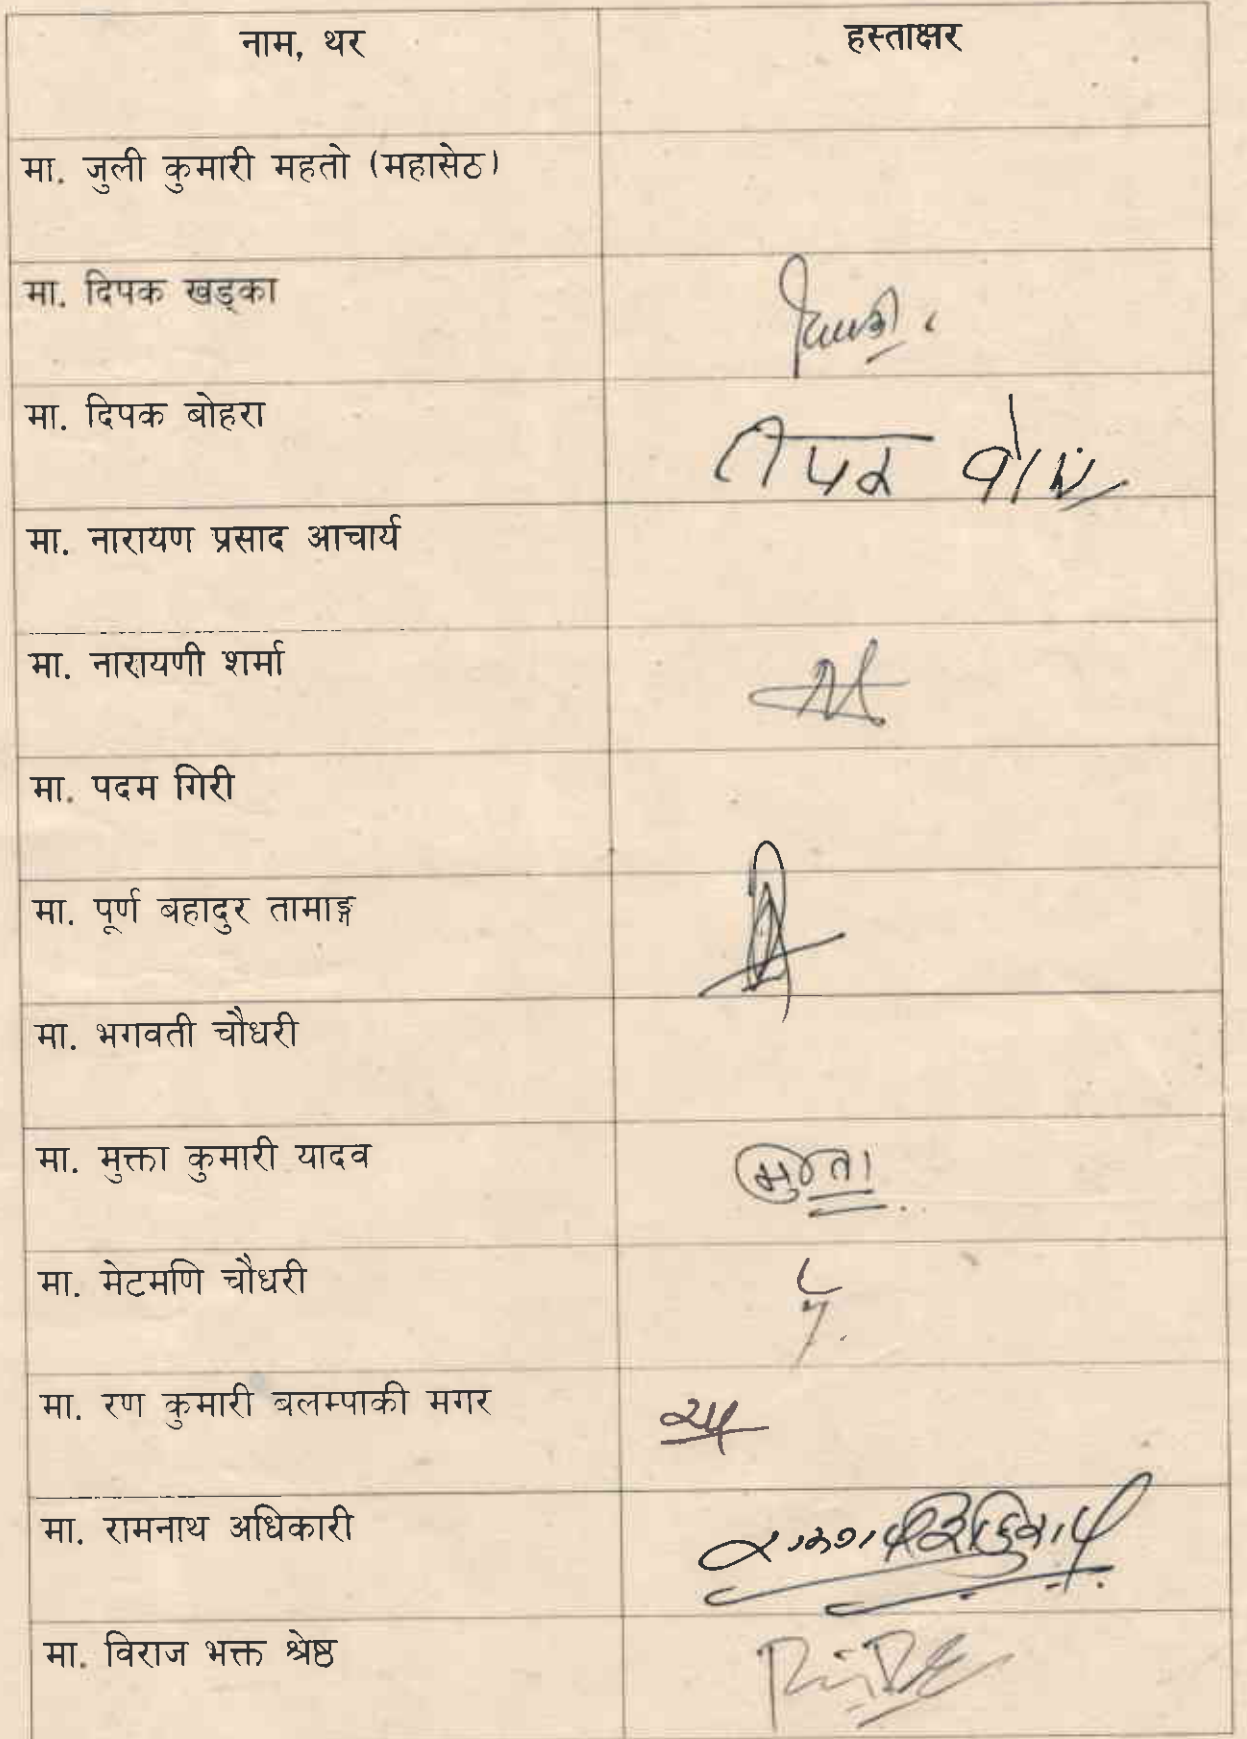 नाम, थर हस्ताक्षर
मा. जुली कुमारी महतो (महासेठ)
मा. दिपक खड्का
मा. दिपक बोहरा
मा. नारायण प्रसाद आचार्य
मा. नारायणी शर्मा
मा. पदम गिरी
मा. पूर्ण बहादुर तामाङ्ग
मा. भगवती चौधरी
मा. मुक्ता कुमारी यादव
मा. मेटमणि चौधरी
मा. रण कुमारी बलम्पाकी मगर
मा. रामनाथ अधिकारी
मा. विराज भक्त श्रेष्ठ